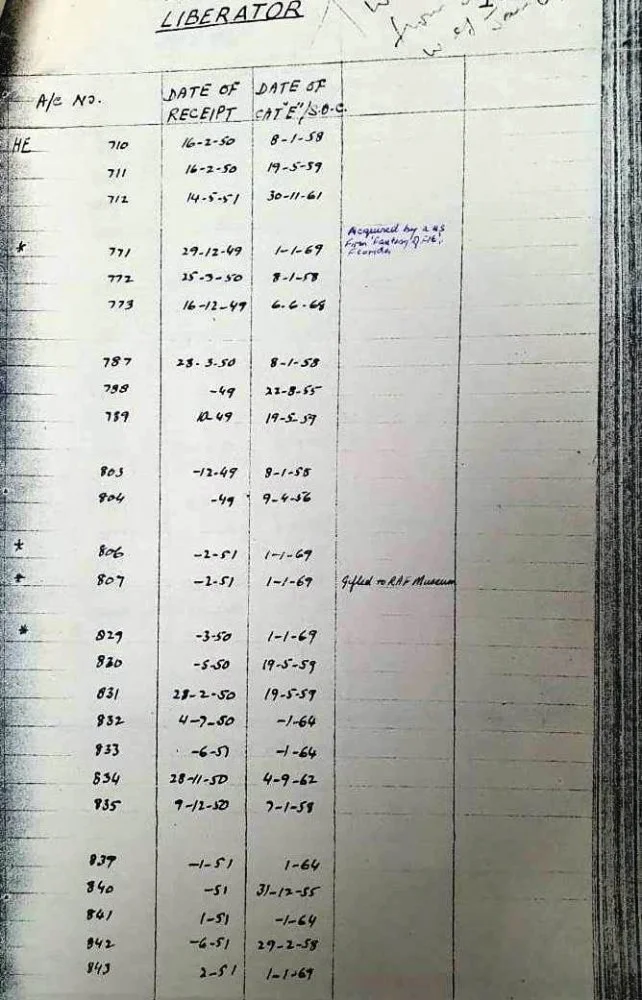 LIBERATOR
from
A/C NO. DATE OF RECEIPT DATE OF CAT"E"/S.O.C.
HE 710 16-2-50 8-1-58
711 16-2-50 19-5-59
712 14-5-51 30-11-61
Acquired by a US
* 771 29-12-49 1-1-69 from Fantasy of
Florida
772 25-3-50 8-1-58
773 16-12-49 6-6-68
787 28-3-50 8-1-58
788 -49 22-8-55
789 10-49 19-5-59
803 -12-49 8-1-58
804 -49 9-4-56
* 806 -2-51 1-1-69
* 807 -2-51 1-1-69 Gifted to RAF Museum
* 829 -3-50 1-1-69
830 -5-50 19-5-59
831 28-2-50 19-5-59
832 4-7-50 -1-64
833 -6-51 -1-64
834 28-11-50 4-9-62
835 9-12-50 7-1-58
839 -1-51 1-64
840 -51 31-12-55
841 1-51 -1-64
842 -6-51 29-2-58
843 2-51 1-1-69